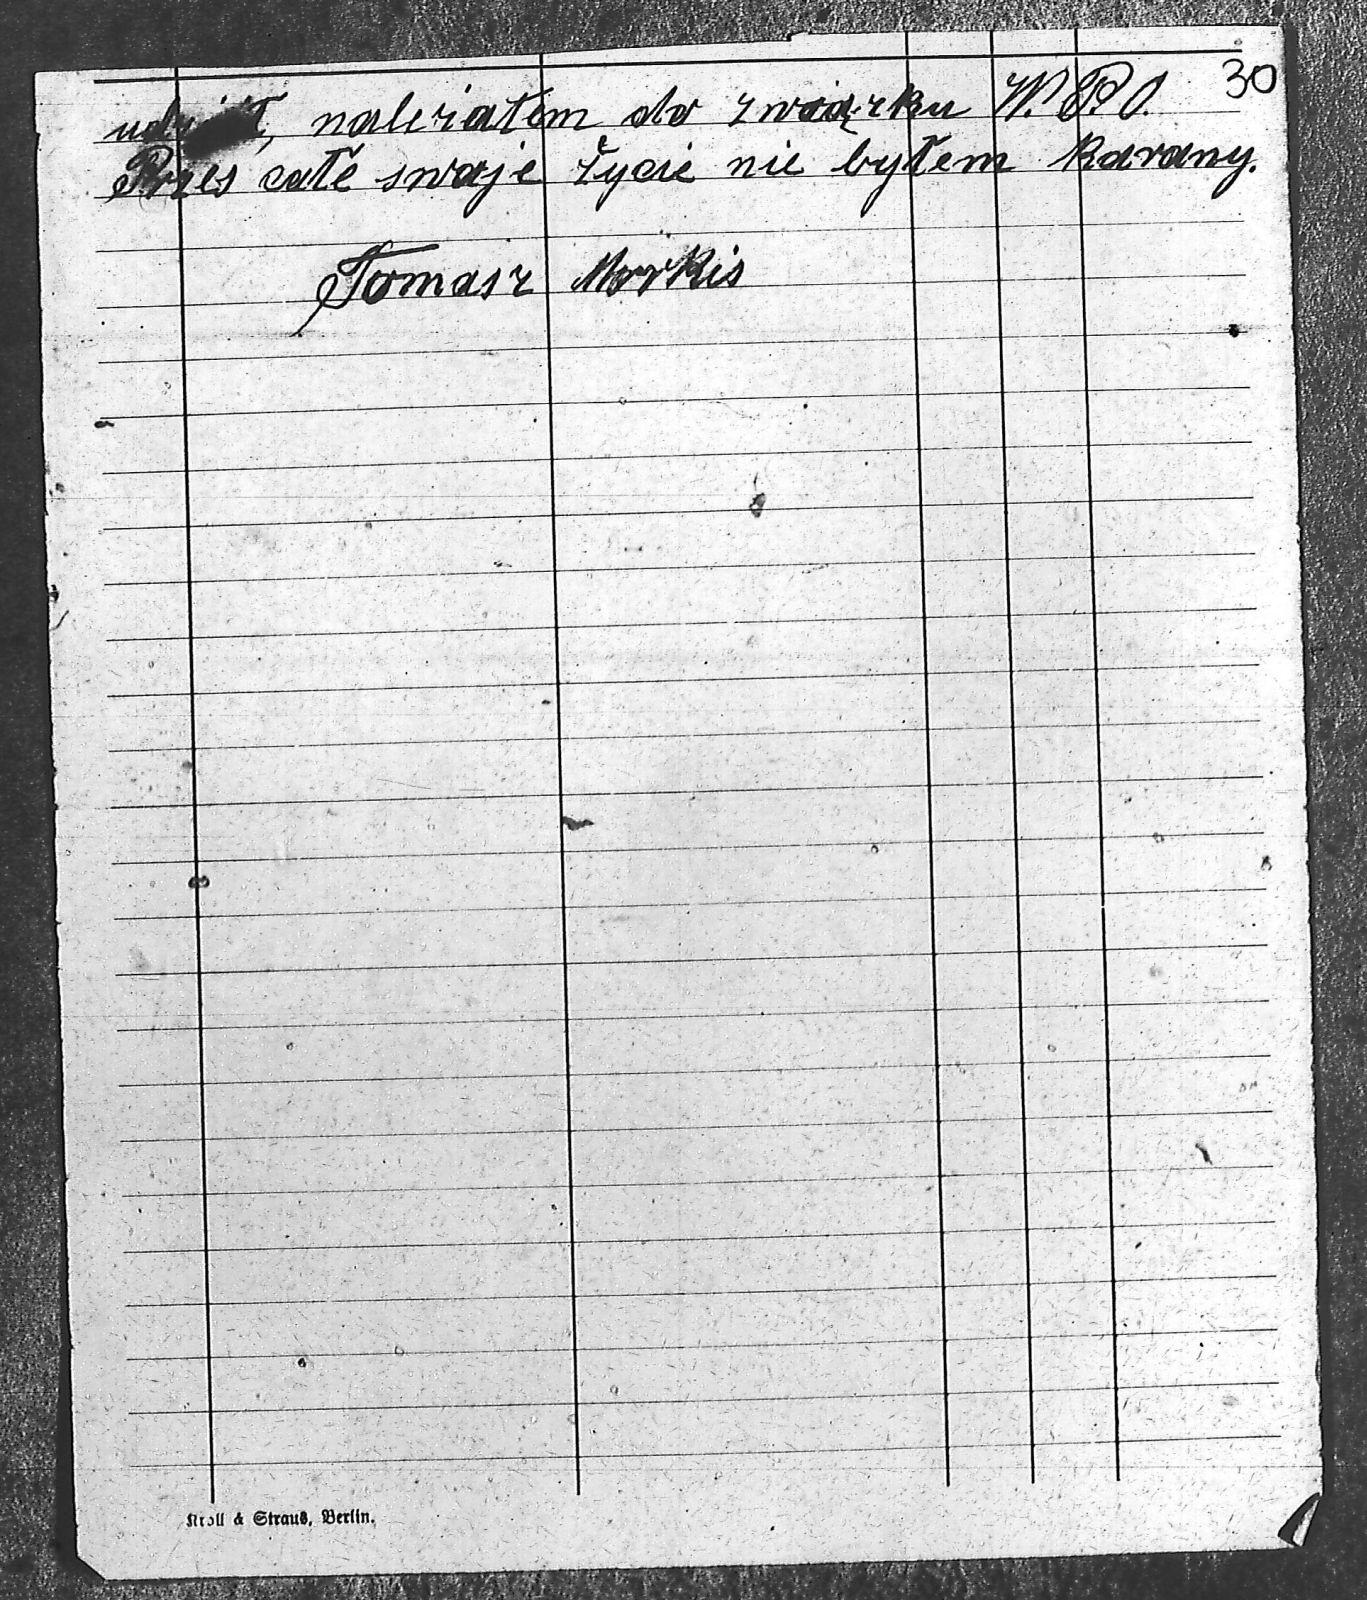 30
należiałem do zwiąrku W. P. O.
Przes całe swoje życie nie byłem karany.
Tomasz Morkis
Kroll & Straus, Berlin.